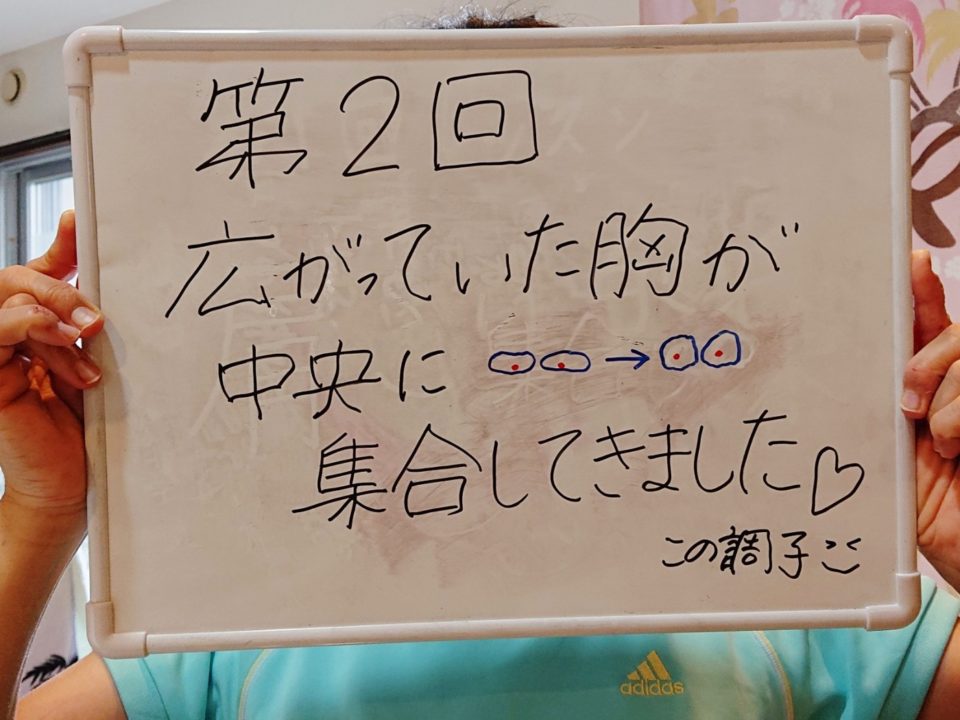 第2回
広がっていた胸が
中央に →
集合してきました♡
この調子
adidas